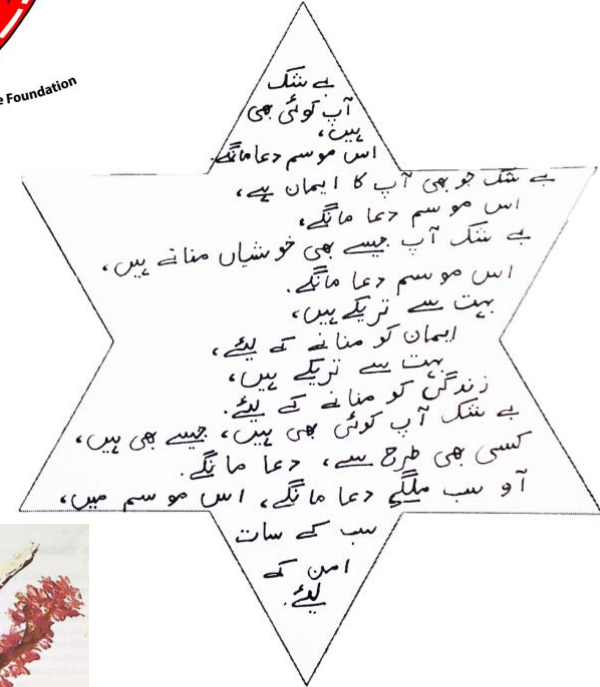 e Foundation
بے شک
آپ کوئی بھی
ہیں،
اس موسم دعا مانگے۔
بے شک جو بھی آپ کا ایمان ہے،
اس موسم دعا مانگے،
بے شک آپ جیسے بھی خوشیاں مناتے ہیں،
اس موسم دعا مانگے۔
بہت سے تریکے ہیں،
ایمان کو منانے کے لیئے،
بہت سے تریکے ہیں،
زندگی کو منانے کے لیئے۔
بے شک آپ کوئی بھی ہیں، جیسے بھی ہیں،
کسی بھی طرح سے، دعا مانگے۔
آو سب ملگے دعا مانگے، اس موسم میں،
سب کے سات
امن کے
لیئے۔